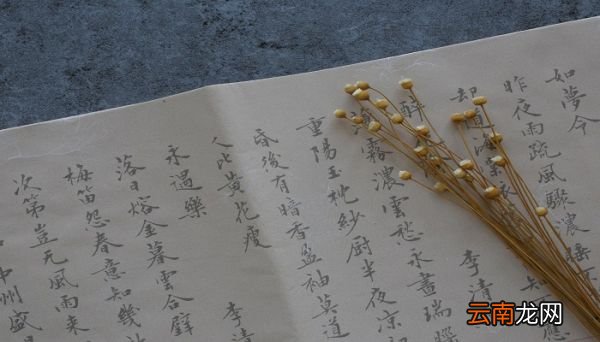 如夢令
昨夜雨疏風驟濃
却道海棠依
醉 李清
薄霧濃雲愁永晝瑞腦
重陽玉枕紗厨半夜凉初
昏後有暗香盈袖莫道
人比黃花瘦
永遇樂 李清
落日熔金暮雲合璧
梅笛怨春意知幾許
次第豈无風雨來
中州盛
云南龙网